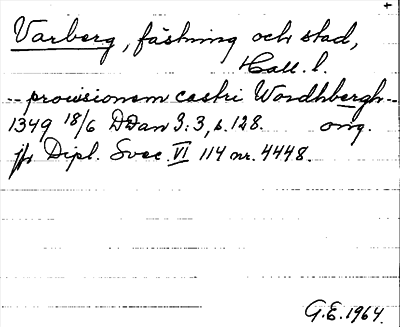 +
Varberg, fästning och stad,
Hall. l.
-- provisionem castri Wardhbergh --
1349 18/6 DDan 3:3, s. 128. orig.
jfr Dipl. Svec. VI 114 nr. 4448.
G.E. 1964.